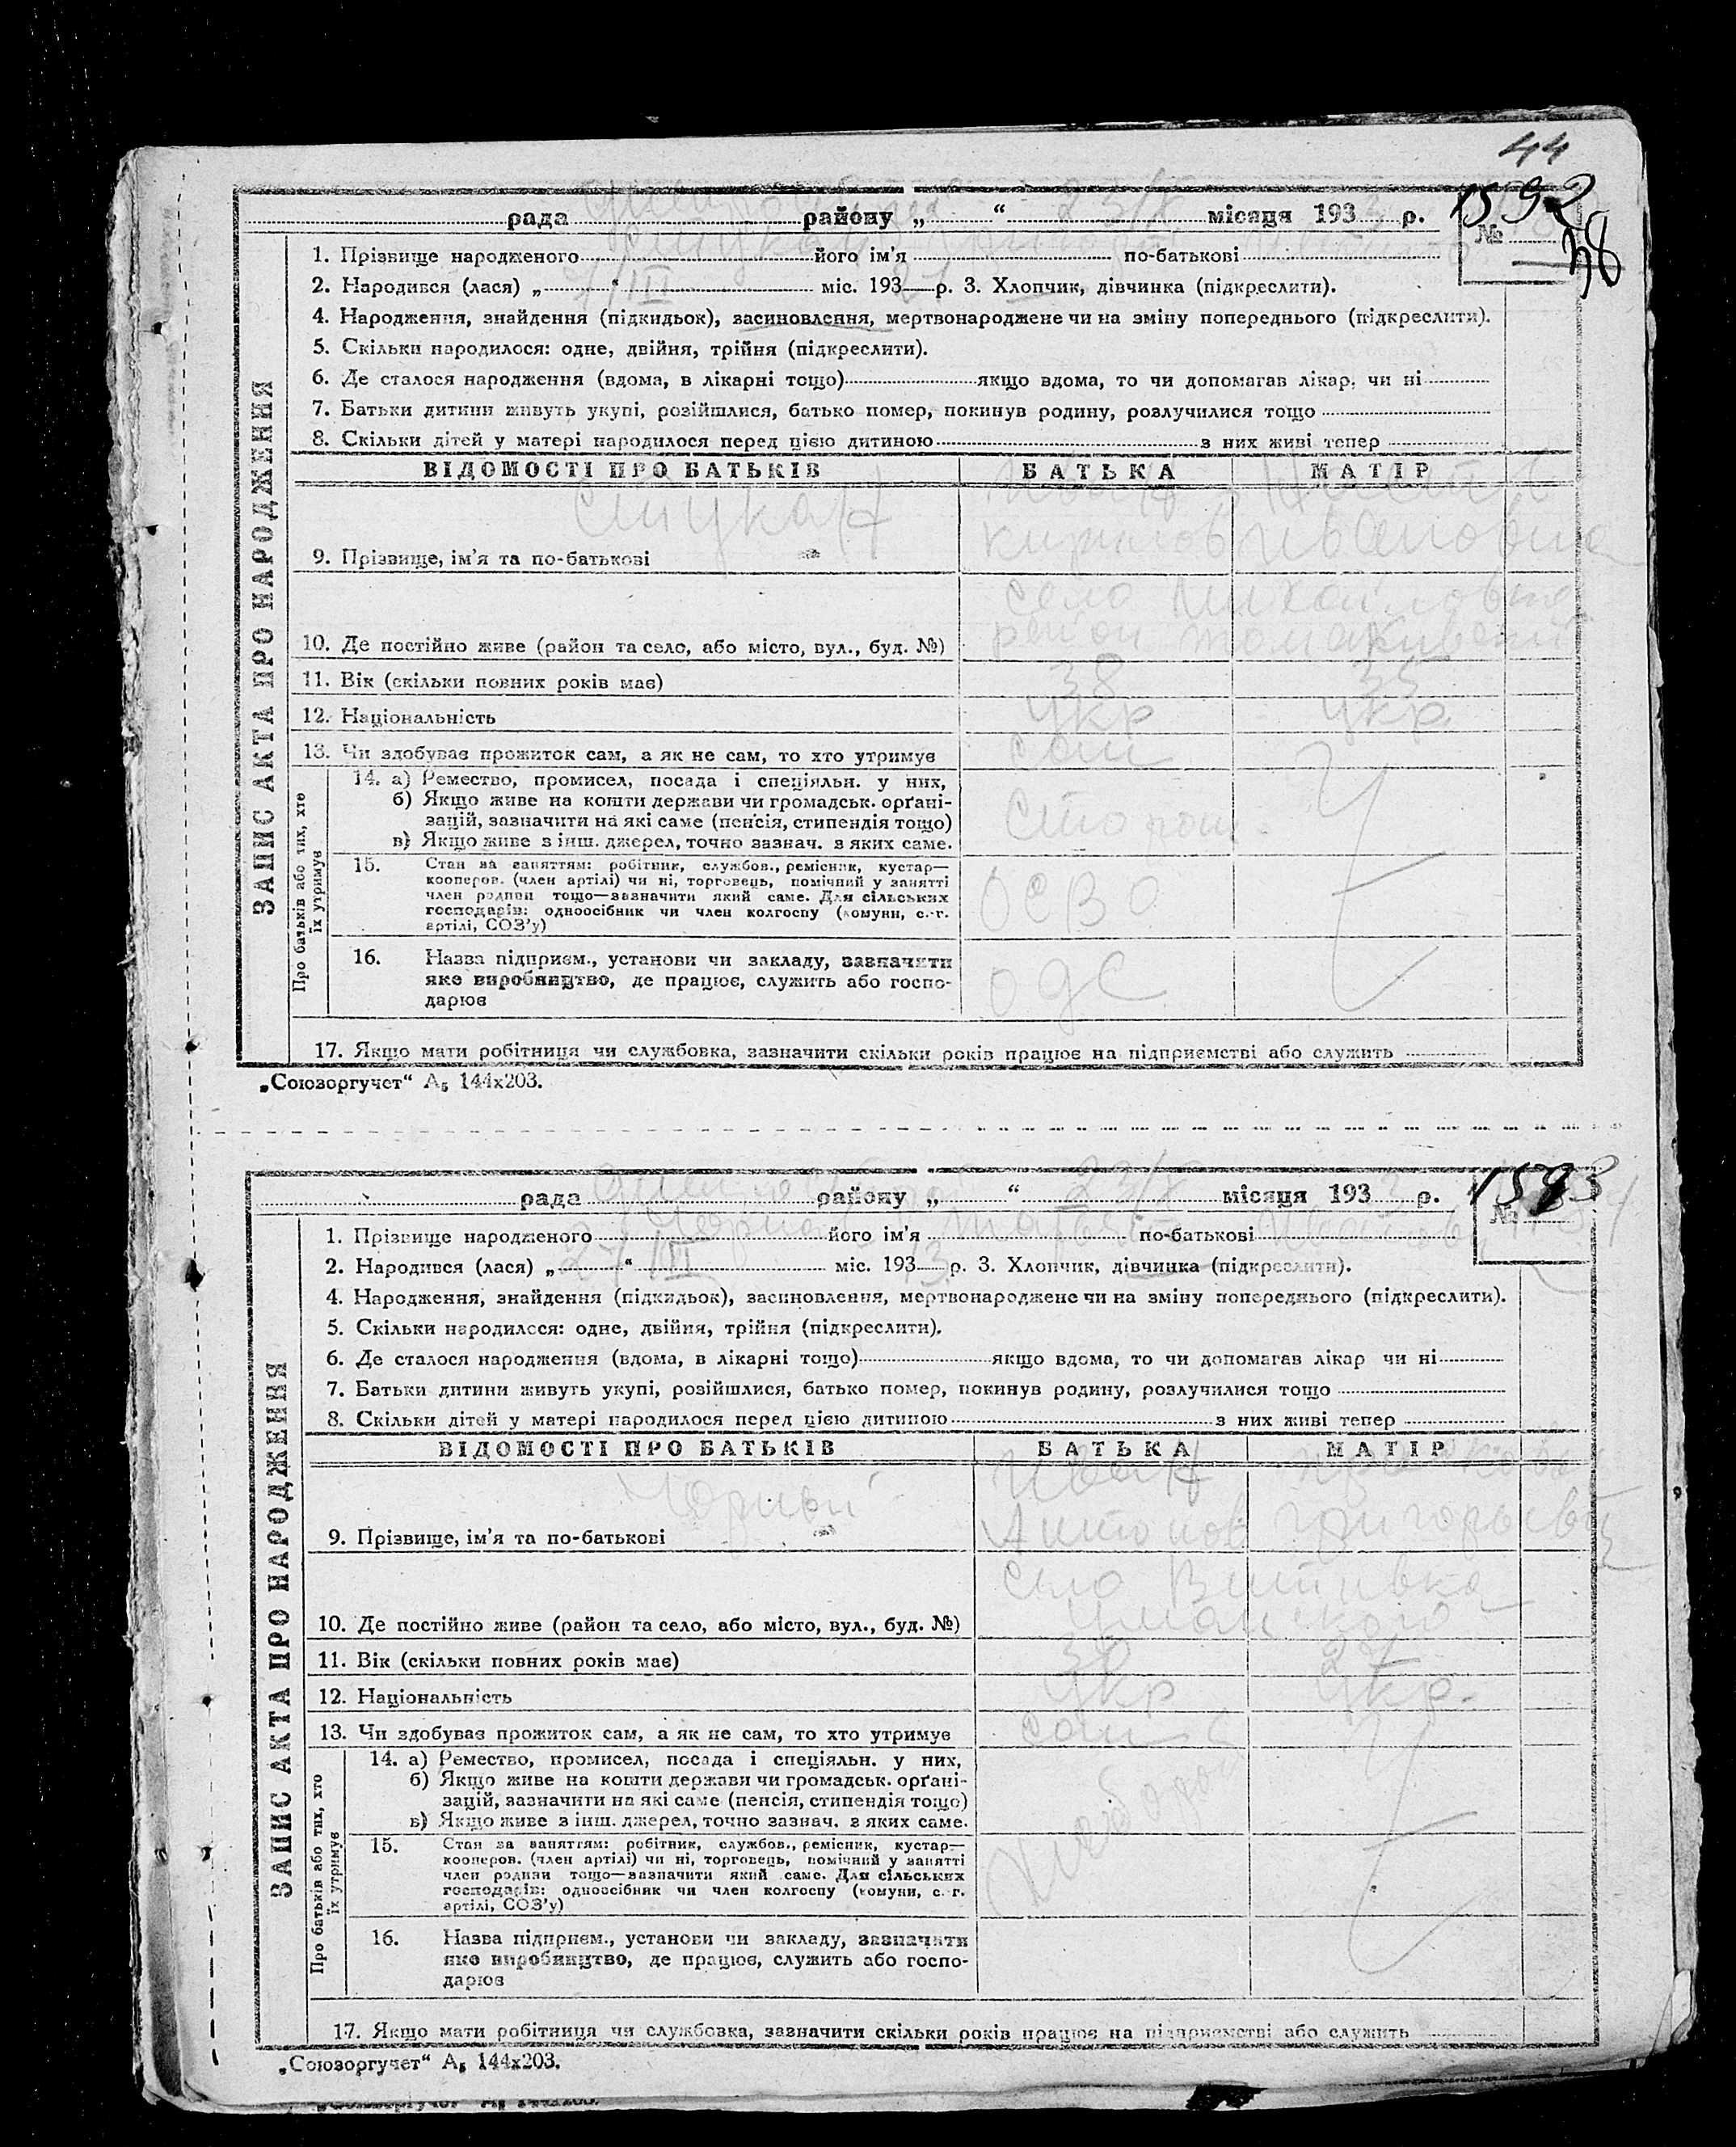 44
рада району „ “ 23/X місяця 1933 р.
1592
№
38
1. Прізвище народженого його ім'я по-батькові
2. Народився (лася) „ 7/III “ міс. 193 р. 3. Хлопчик, дівчинка (підкреслити).
4. Народження, знайдення (підкидьок), засиновлення, мертвонароджене чи на зміну попереднього (підкреслити).
5. Скільки народилося: одне, двійня, трійня (підкреслити).
6. Де сталося народження (вдома, в лікарні тощо) якщо вдома, то чи допомагав лікар, чи ні
7. Батьки дитини живуть укупі, розійшлися, батько помер, покинув родину, розлучилися тощо
8. Скільки дітей у матері народилося перед цією дитиною з них живі тепер
ЗАПИС АКТА ПРО НАРОДЖЕННЯ
ВІДОМОСТІ ПРО БАТЬКІВ БАТЬКА МАТІР
9. Прізвище, ім'я та по-батькові Ивановна
село Михайловка
10. Де постійно живе (район та село, або місто, вул., буд. №) район Томакивский
11. Вік (скільки повних років має) 38 35
12. Національність укр укр
13. Чи здобуває прожиток сам, а як не сам, то хто утримує сам
Про батьків або тих, хто їх утримує
14. а) Ремество, промисел, посада і спеціяльн. у них,
б) Якщо живе на кошти держави чи громадськ. орґані-
зацій, зазначити на які саме (пенсія, стипендія тощо) сторож
в) Якщо живе з інш. джерел, точно зазнач. з яких саме.
15. Стан за заняттям: робітник, службов., ремісник, кустар—
кооперов. (член артілі) чи ні, торговець, помічний у занятті
член родини тощо—зазначити який саме. Для сільських
господарів: одноосібник чи член колгоспу (комуни, с.-г.
артілі, СОЗ'у)
16. Назва підприєм., установи чи закладу, зазначити
яке виробництво, де працює, служить або госпо-
дарює
17. Якщо мати робітниця чи службовка, зазначити скільки років працює на підприємстві або служить
„Союзоргучет“ А₅ 144х203.
рада району „ “ 23/X місяця 1933 р.
1593
№
1. Прізвище народженого його ім'я по-батькові
2. Народився (лася) „ 27/III “ міс. 193 3 р. 3. Хлопчик, дівчинка (підкреслити).
4. Народження, знайдення (підкидьок), засиновлення, мертвонароджене чи на зміну попереднього (підкреслити).
5. Скільки народилося: одне, двійня, трійня (підкреслити).
6. Де сталося народження (вдома, в лікарні тощо) якщо вдома, то чи допомагав лікар чи ні
7. Батьки дитини живуть укупі, розійшлися, батько помер, покинув родину, розлучилися тощо
8. Скільки дітей у матері народилося перед цією дитиною з них живі тепер
ЗАПИС АКТА ПРО НАРОДЖЕННЯ
ВІДОМОСТІ ПРО БАТЬКІВ БАТЬКА МАТІР
Чорный Иван
9. Прізвище, ім'я та по-батькові Антонов
село
10. Де постійно живе (район та село, або місто, вул., буд. №)
11. Вік (скільки повних років має)
12. Національність укр укр.
13. Чи здобуває прожиток сам, а як не сам, то хто утримує сам
Про батьків або тих, хто їх утримує
14. а) Ремество, промисел, посада і спеціяльн. у них,
б) Якщо живе на кошти держави чи громадськ. орґані-
зацій, зазначити на які саме (пенсія, стипендія тощо)
в) Якщо живе з інш. джерел, точно зазнач. з яких саме.
15. Стан за заняттям: робітник, службов., ремісник, кустар—
кооперов. (член артілі) чи ні, торговець, помічний у занятті
член родини тощо—зазначити який саме. Для сільських
господарів: одноосібник чи член колгоспу (комуни, с.-г.
артілі, СОЗ'у)
16. Назва підприєм., установи чи закладу, зазначити
яке виробництво, де працює, служить або госпо-
дарює
17. Якщо мати робітниця чи службовка, зазначити скільки років працює на підприємстві або служить
„Союзоргучет“ А₅ 144х203.